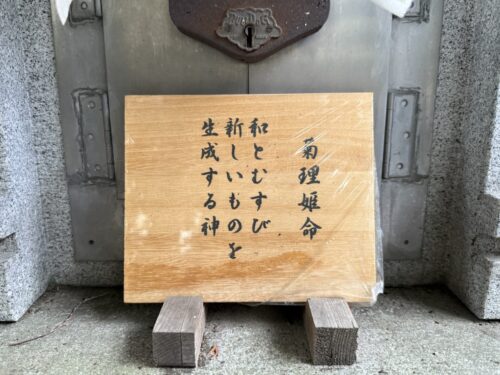 菊理姫命
和とむすび
新しいものを
生成する神